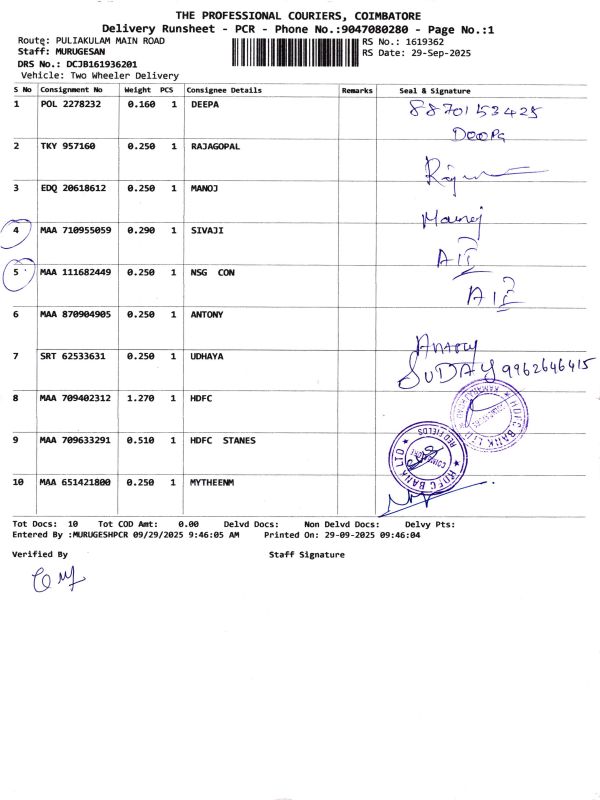 THE PROFESSIONAL COURIERS, COIMBATORE
Delivery Runsheet - PCR - Phone No.:9047080280 - Page No.:1
Route: PULIAKULAM MAIN ROAD RS No.: 1619362
Staff: MURUGESAN RS Date: 29-Sep-2025
DRS No.: DCJB161936201
Vehicle: Two Wheeler Delivery
S No Consignment No Weight PCS Consignee Details Remarks Seal & Signature
1 POL 2278232 0.160 1 DEEPA 8870153425
2 TKY 957160 0.250 1 RAJAGOPAL
3 EDQ 20618612 0.250 1 MANOJ Manoj
4 MAA 710955059 0.290 1 SIVAJI
5 MAA 111682449 0.250 1 NSG CON
6 MAA 870904905 0.250 1 ANTONY Antony
7 SRT 62533631 0.250 1 UDHAYA UDAY 9962646415
8 MAA 709402312 1.270 1 HDFC HDFC BANK LTD
9 MAA 709633291 0.510 1 HDFC STANES HDFC BANK LTD RED FIELDS COIMBATORE
10 MAA 651421800 0.250 1 MYTHEENM
Tot Docs: 10 Tot COD Amt: 0.00 Delvd Docs: Non Delvd Docs: Delvy Pts:
Entered By :MURUGESHPCR 09/29/2025 9:46:05 AM Printed On: 29-09-2025 09:46:04
Verified By Staff Signature